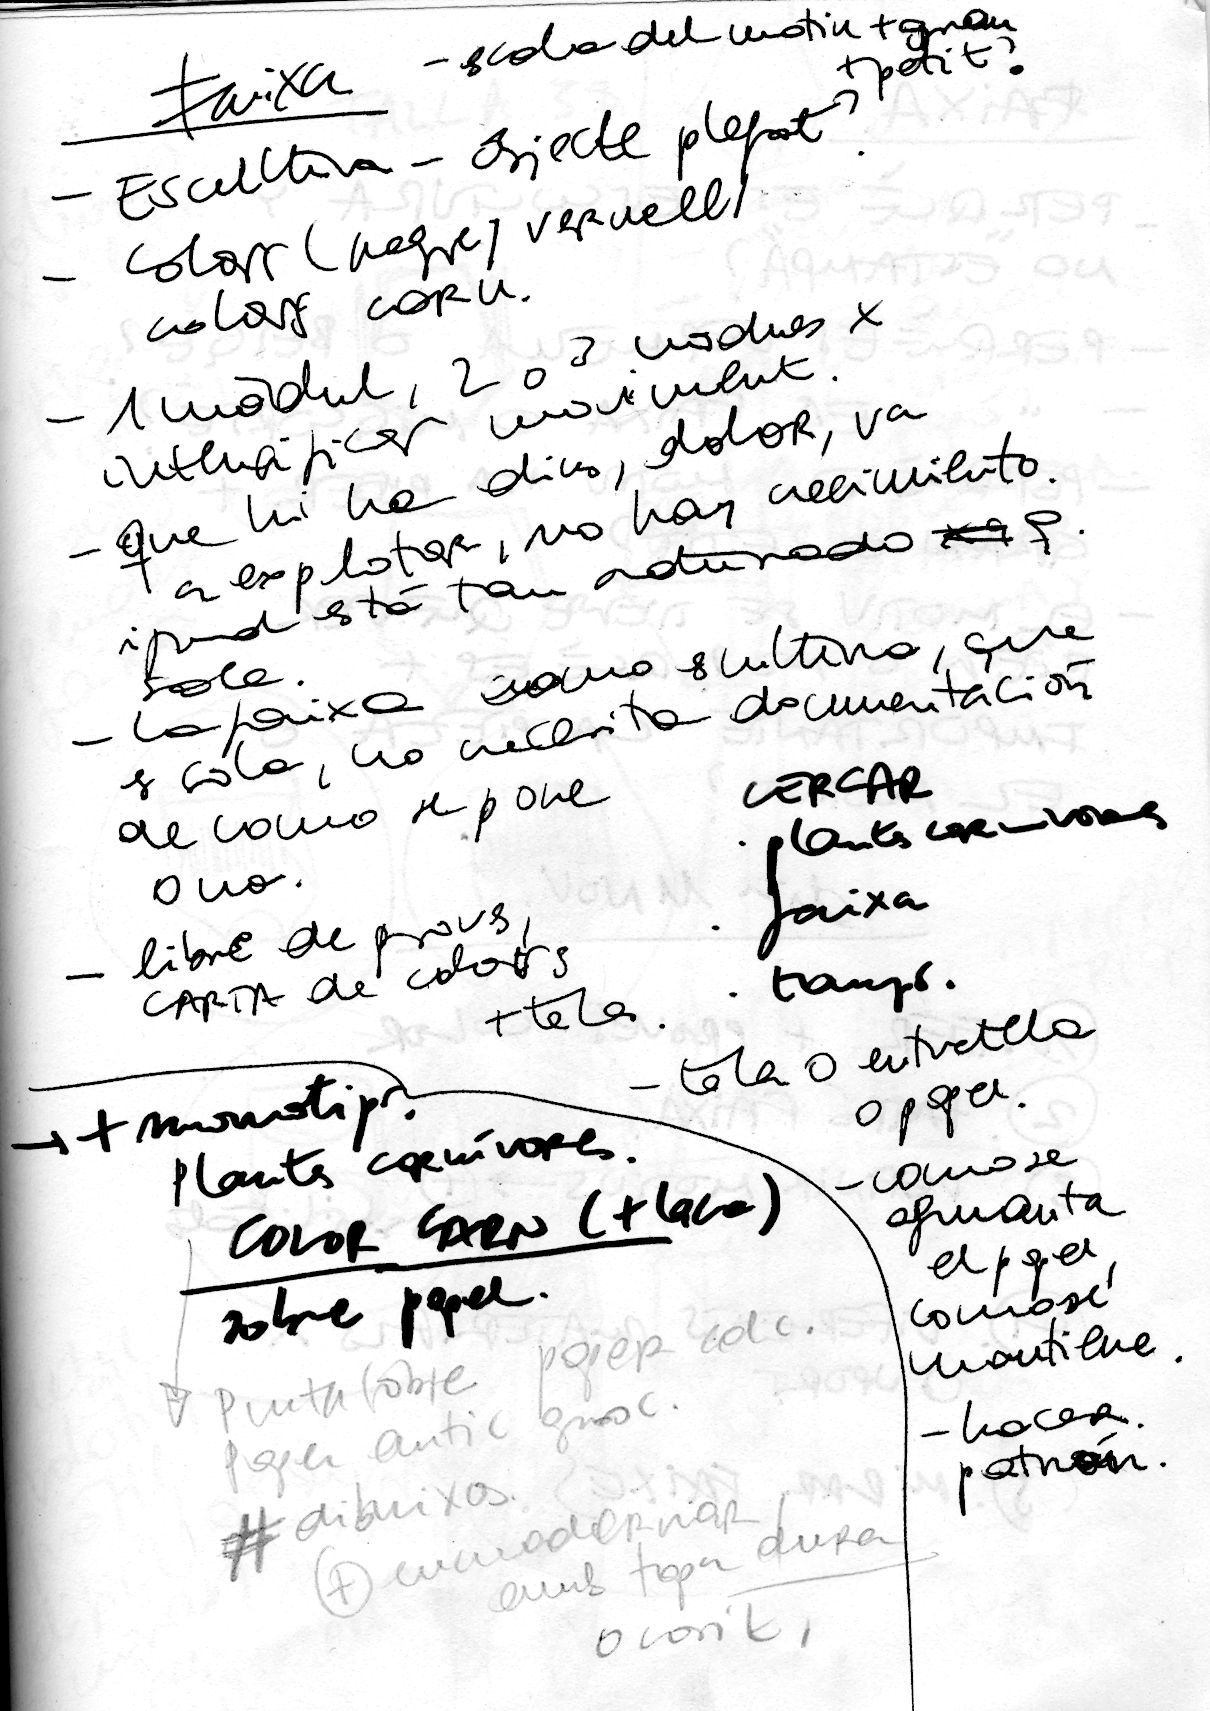 faixa
- escala del motiu + gran
+ petit?
- Escultura - objecte plegat?
- Colors (negre, vermell)
colors carn.
- 1 mòdul, 2 o 3 moduls x
intensificar moviment.
- que hi ha dins, dolor, va
a explotar, no hay crecimiento.
igual está tan
sola.
- la faixa como escultura, que
es sola, no necesita documentación
de como se pone
o no.
- llibre de proves,
CARTA de colors
+ tela.
CERCAR
. plantes carnivores
. faixa
. tamps.
- tela o entretela
o papel.
- como se
aguanta
el papel,
como se
mantiene.
- hacer
patrón.
→ + monotips.
Plantes carnívores.
COLOR CARN (+ laca)
sobre papel.
Punta sobre paper
paper antic groc.
# dibuixos.
+ enmodernar
amb tapa dura
o